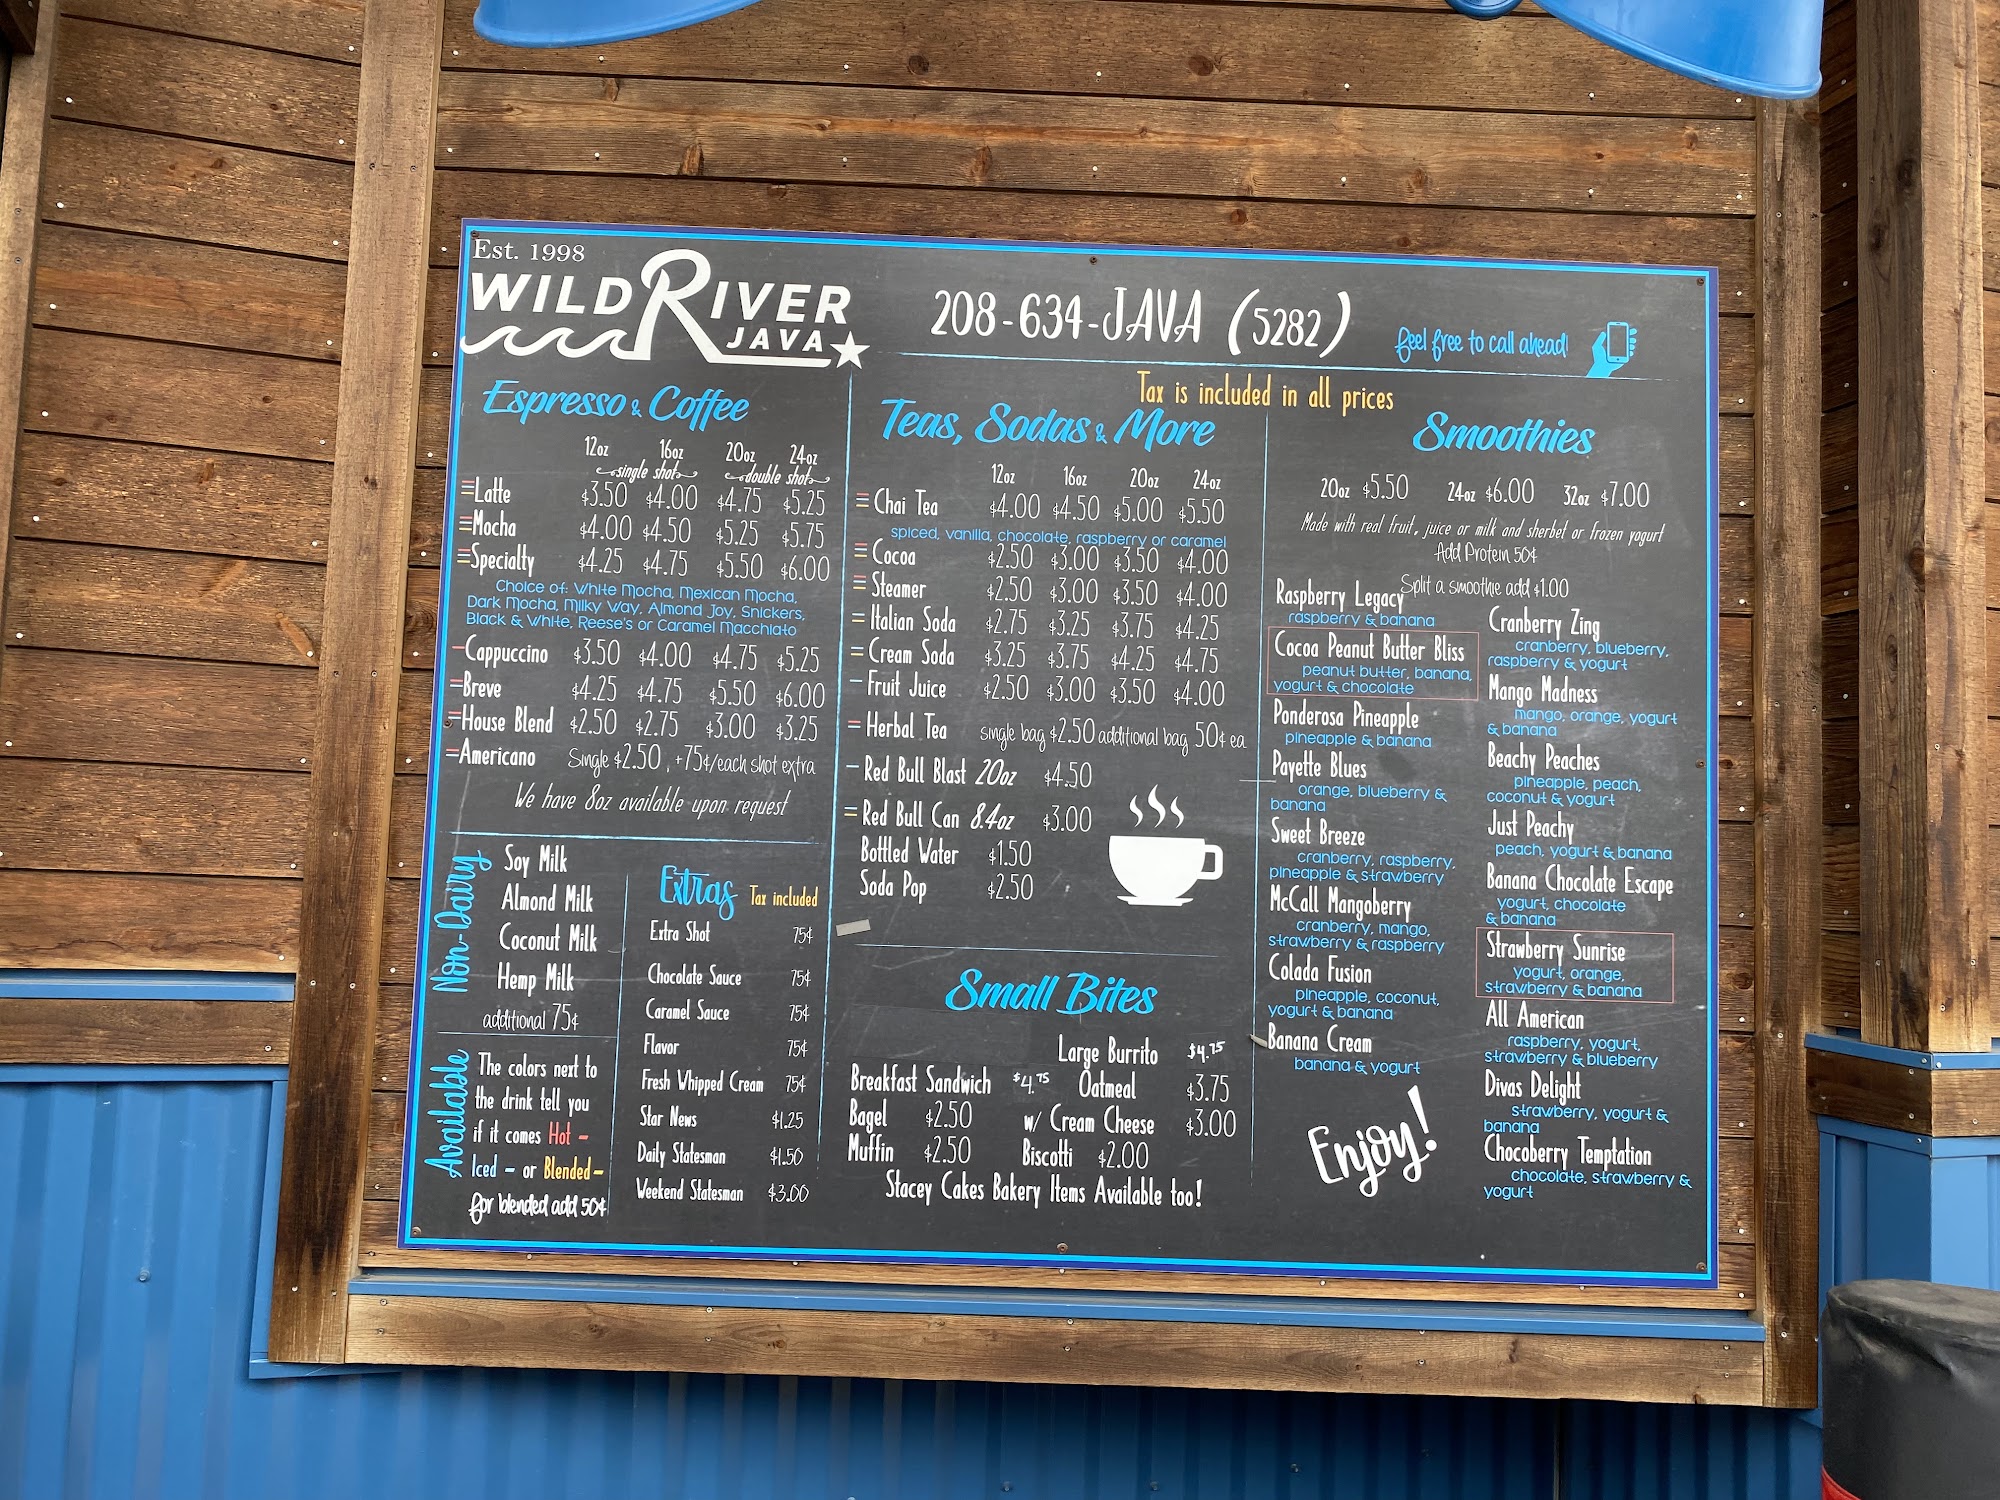 Est. 1998
WILD RIVER
JAVA
208-634-JAVA (5282)
feel free to call ahead!
Tax is included in all prices
Espresso & Coffee
12oz 16oz 20oz 24oz
single shot double shot
Latte $3.50 $4.00 $4.75 $5.25
Mocha $4.00 $4.50 $5.25 $5.75
Specialty $4.25 $4.75 $5.50 $6.00
Choice of: White Mocha, Mexican Mocha,
Dark Mocha, Milky Way, Almond Joy, Snickers,
Black & White, Reese's or Caramel Macchiato
Cappuccino $3.50 $4.00 $4.75 $5.25
Breve $4.25 $4.75 $5.50 $6.00
House Blend $2.50 $2.75 $3.00 $3.25
Americano Single $2.50, +75¢/each shot extra
We have 8oz available upon request
Non-Dairy
Soy Milk
Almond Milk
Coconut Milk
Hemp Milk
additional 75¢
Available
The colors next to
the drink tell you
if it comes Hot -
Iced - or Blended -
for blended add 50¢
Extras Tax included
Extra Shot 75¢
Chocolate Sauce 75¢
Caramel Sauce 75¢
Flavor 75¢
Fresh Whipped Cream 75¢
Star News $1.25
Daily Statesman $1.50
Weekend Statesman $3.00
Teas, Sodas & More
12oz 16oz 20oz 24oz
Chai Tea $4.00 $4.50 $5.00 $5.50
spiced, vanilla, chocolate, raspberry or caramel
Cocoa $2.50 $3.00 $3.50 $4.00
Steamer $2.50 $3.00 $3.50 $4.00
Italian Soda $2.75 $3.25 $3.75 $4.25
Cream Soda $3.25 $3.75 $4.25 $4.75
Fruit Juice $2.50 $3.00 $3.50 $4.00
Herbal Tea single bag $2.50 additional bag 50¢ ea
Red Bull Blast 20oz $4.50
Red Bull Can 8.4oz $3.00
Bottled Water $1.50
Soda Pop $2.50
Small Bites
Large Burrito $4.75
Breakfast Sandwich $4.75 Oatmeal $3.75
Bagel $2.50 w/ Cream Cheese $3.00
Muffin $2.50 Biscotti $2.00
Stacey Cakes Bakery Items Available too!
Smoothies
20oz $5.50 24oz $6.00 32oz $7.00
Made with real fruit, juice or milk and sherbet or frozen yogurt
Add Protein 50¢
Split a smoothie add $1.00
Raspberry Legacy
raspberry & banana
Cocoa Peanut Butter Bliss
peanut butter, banana,
yogurt & chocolate
Ponderosa Pineapple
pineapple & banana
Payette Blues
orange, blueberry &
banana
Sweet Breeze
cranberry, raspberry,
pineapple & strawberry
McCall Mangoberry
cranberry, mango,
strawberry & raspberry
Colada Fusion
pineapple, coconut,
yogurt & banana
Banana Cream
banana & yogurt
Enjoy!
Cranberry Zing
cranberry, blueberry,
raspberry & yogurt
Mango Madness
mango, orange, yogurt
& banana
Beachy Peaches
pineapple, peach,
coconut & yogurt
Just Peachy
peach, yogurt & banana
Banana Chocolate Escape
yogurt, chocolate
& banana
Strawberry Sunrise
yogurt, orange,
strawberry & banana
All American
raspberry, yogurt,
strawberry & blueberry
Divas Delight
strawberry, yogurt &
banana
Chocoberry Temptation
chocolate, strawberry &
yogurt